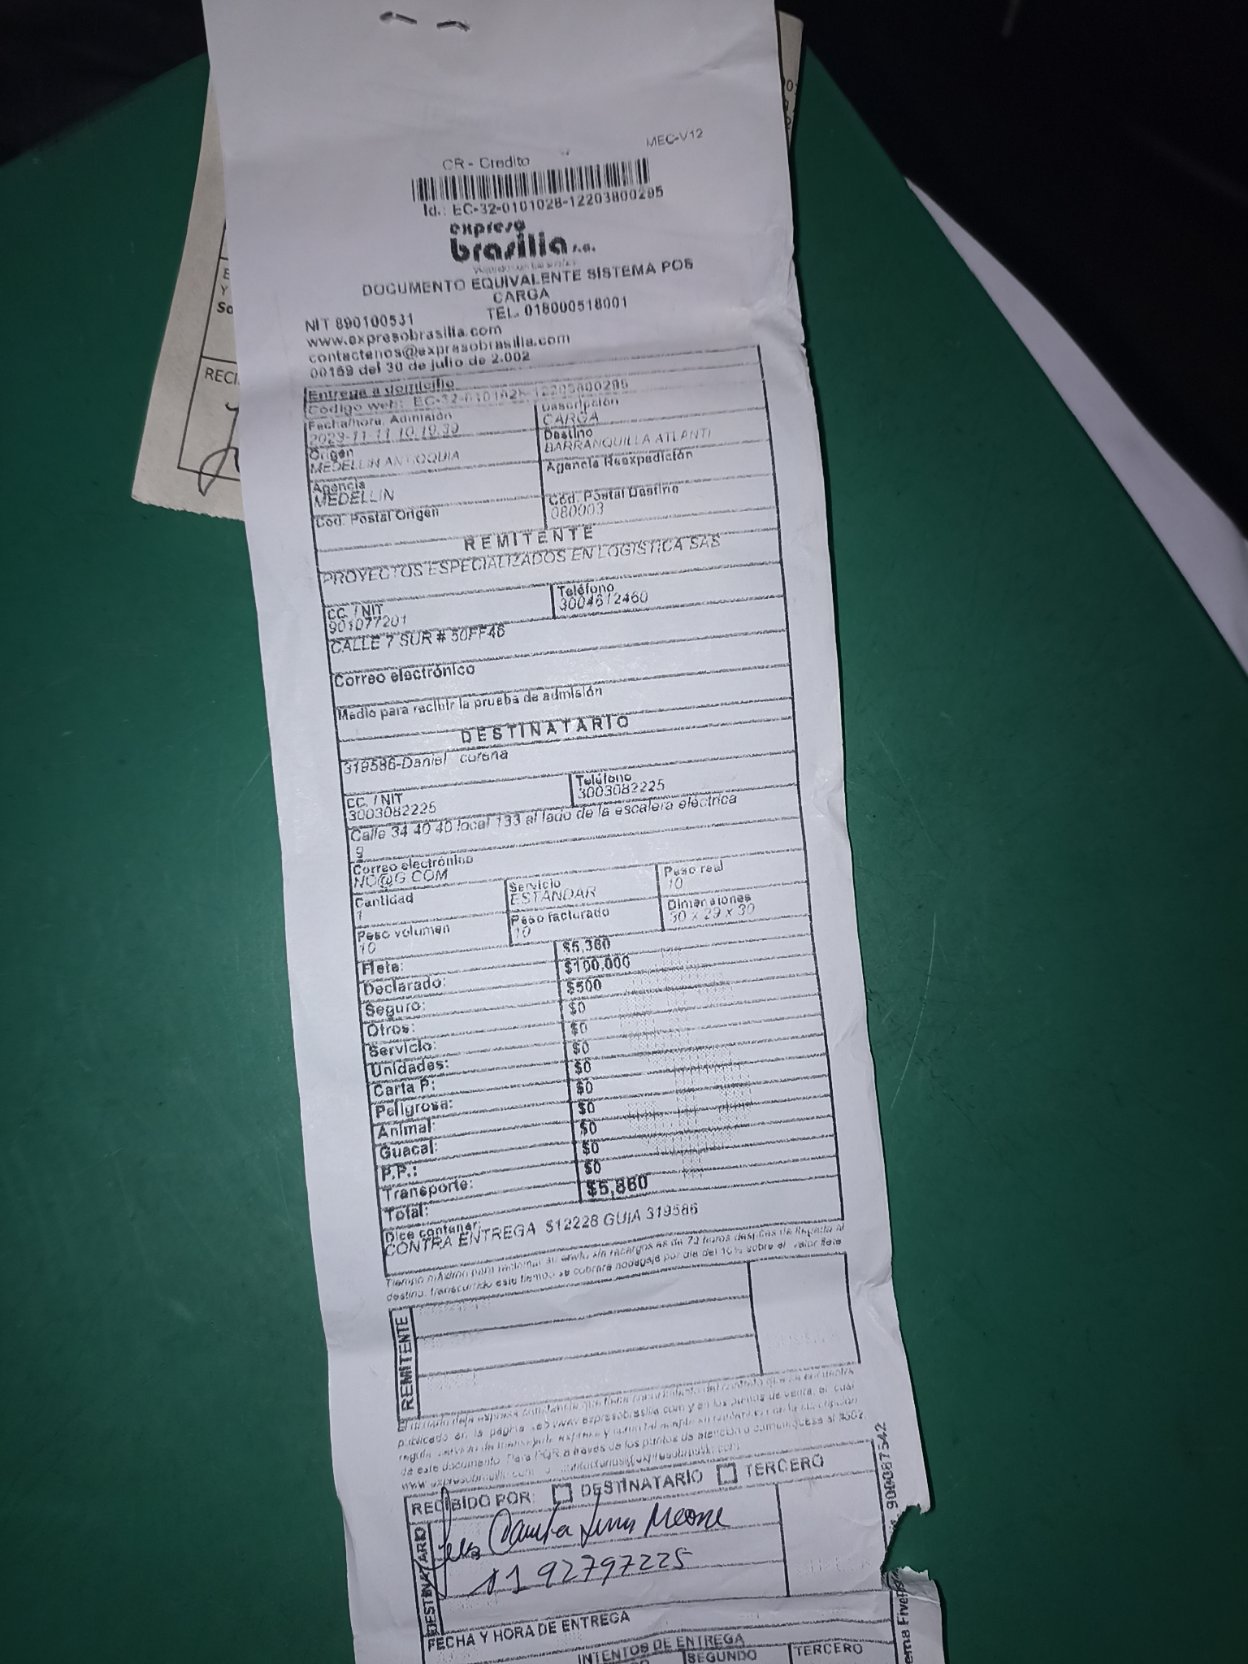 MEC-V12
CR - Credito
Id.: EC-32-0101028-12203800295
expreso
brasilia s.a.
DOCUMENTO EQUIVALENTE SISTEMA POS
CARGA
NIT 890100531 TEL. 018000518001
www.expresobrasilia.com
contactenos@expresobrasilia.com
00169 del 30 de julio de 2.002
Entrega a domicilio
Codigo web:
Fecha/hora. Admisión Descripción
2023-11-11 10:19:39 CARGA
Origen Destino
MEDELLIN ANTIOQUIA BARRANQUILLA ATLANTI
Agencia Agencia Reexpedición
MEDELLIN
Cod. Postal Origen Cód. Postal Destino
080003
REMITENTE
PROYECTOS ESPECIALIZADOS EN LOGISTICA SAS
CC. / NIT Teléfono
901077201 3004612460
CALLE 7 SUR # 50FF46
Correo electrónico
Medio para recibir la prueba de admisión
DESTINATARIO
319586-Daniel corena
CC. / NIT Teléfono
3003082225 3003082225
Calle 34 40 40 local 133 al lado de la escalera eléctrica
g
Correo electrónico
NO@G.COM
Cantidad Servicio Peso real
1 ESTANDAR 10
Peso volumen Peso facturado Dimensiones
10 10 30 x 29 x 30
Flete: $5,360
Declarado: $100,000
Seguro: $500
Otros: $0
Servicio: $0
Unidades: $0
Carta P: $0
Peligrosa: $0
Animal: $0
Guacal: $0
P.P.: $0
Transporte: $0
Total: $5,860
Dice contener:
CONTRA ENTREGA $12228 GUIA 319586
Tiempo máximo para reclamar su envío sin recargos es de 72 horas después de llegada al
destino, transcurrido este tiempo se cobrará bodegaje por día del 10% sobre el valor flete
REMITENTE
publicado en la página web www.expresobrasilia.com y en los puntos de venta, el cual
de este documento. Para PQR a través de los puntos de atención o comuníquese al
RECIBIDO POR: DESTINATARIO TERCERO
DESTINATARIO
1192797225
FECHA Y HORA DE ENTREGA
INTENTOS DE ENTREGA
SEGUNDO TERCERO
900087542
RECI